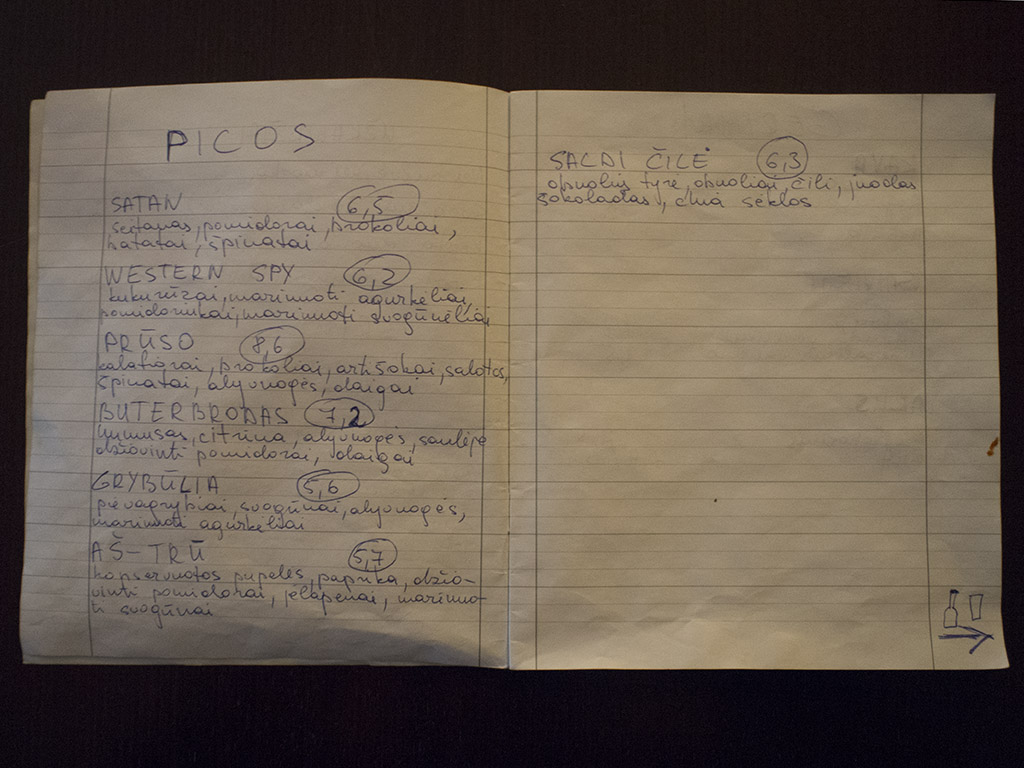 PICOS
SATAN 6,5
seitanas, pomidorai, brokoliai,
batatai, špinatai
WESTERN SPY 6,2
kukurūzai, marinuoti agurkėliai,
pomidoriukai, marinuoti svogūnėliai
PRŪSO 8,6
kalafiorai, brokoliai, artišokai, salotos,
špinatai, alyvuogės, daigai
BUTERBRODAS 7,2
humusas, citrina, alyvuogės, saulėje
džiovinti pomidorai, daigai
GRYBŪLIA 5,6
pievagrybiai, svogūnai, alyvuogės,
marinuoti agurkėliai
AŠ-TRŪ 5,7
konservuotos pupelės, paprika, džio-
vinti pomidorai, jelapenai, marinuo-
ti svogūnai
SALDI ČILĖ 6,3
obuolių tyrė, obuoliai, čili, juodas
šokoladas, chia sėklos